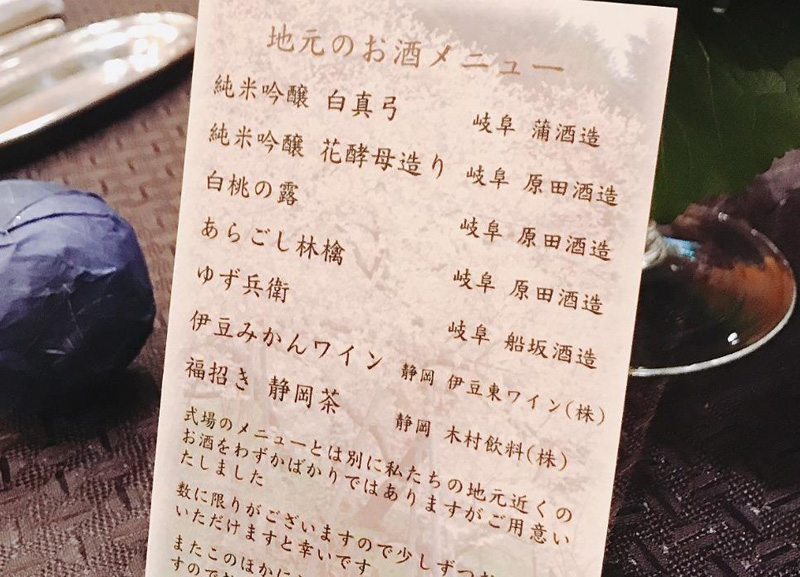 地元のお酒メニュー
純米吟醸 白真弓 岐阜 蒲酒造
純米吟醸 花酵母造り 岐阜 原田酒造
白桃の露 岐阜 原田酒造
あらごし林檎 岐阜 原田酒造
ゆず兵衛 岐阜 船坂酒造
伊豆みかんワイン 静岡 伊豆東ワイン(株)
福招き 静岡茶 静岡 木村飲料(株)
式場のメニューとは別に私たちの地元近くの
お酒をわずかばかりではありますがご用意い
たしました
数に限りがございますので少しずつお
いただけますと幸いです
またこのほかに
すので